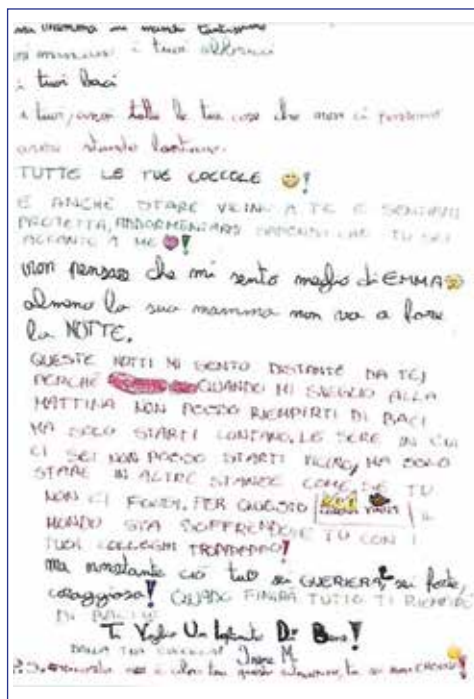 mamma mi manchi tantissimo
mi mancano i tuoi abbracci
i tuoi baci
tutte le tue cose che non ci possono
stando lontane.
TUTTE LE TUE COCCOLE !
E ANCHE STARE VICINO A TE E SENTIRMI
PROTETTA, ADDORMENTARMI SAPENDO CHE TU SEI
ACCANTO A ME !
non pensare che mi sento meglio di EMMA
almeno la sua mamma non va a fare
la NOTTE.
QUESTE NOTTI MI SENTO DISTANTE DA TE,
PERCHÉ QUANDO MI SVEGLIO ALLA
MATTINA NON POSSO RIEMPIRTI DI BACI
MA SOLO STARTI LONTANO, LE SERE IN CUI
CI SEI NON POSSO STARTI VICINO, MA SOLO
STARE IN ALTRE STANZE COME SE TU
NON CI FOSSI, PER QUESTO VIRUS IL
MONDO STA SOFFRENDO E TU CON I
TUOI COLLEGHI TROPPO!
Ma nonostante ciò tu sei GUERRIERA, sei forte,
coraggiosa! QUANDO FINIRÀ TUTTO TI RIEMPIRÒ
DI BACI!
Ti Voglio Un Di Bene!
DALLA TUA Irene M.
P.S.